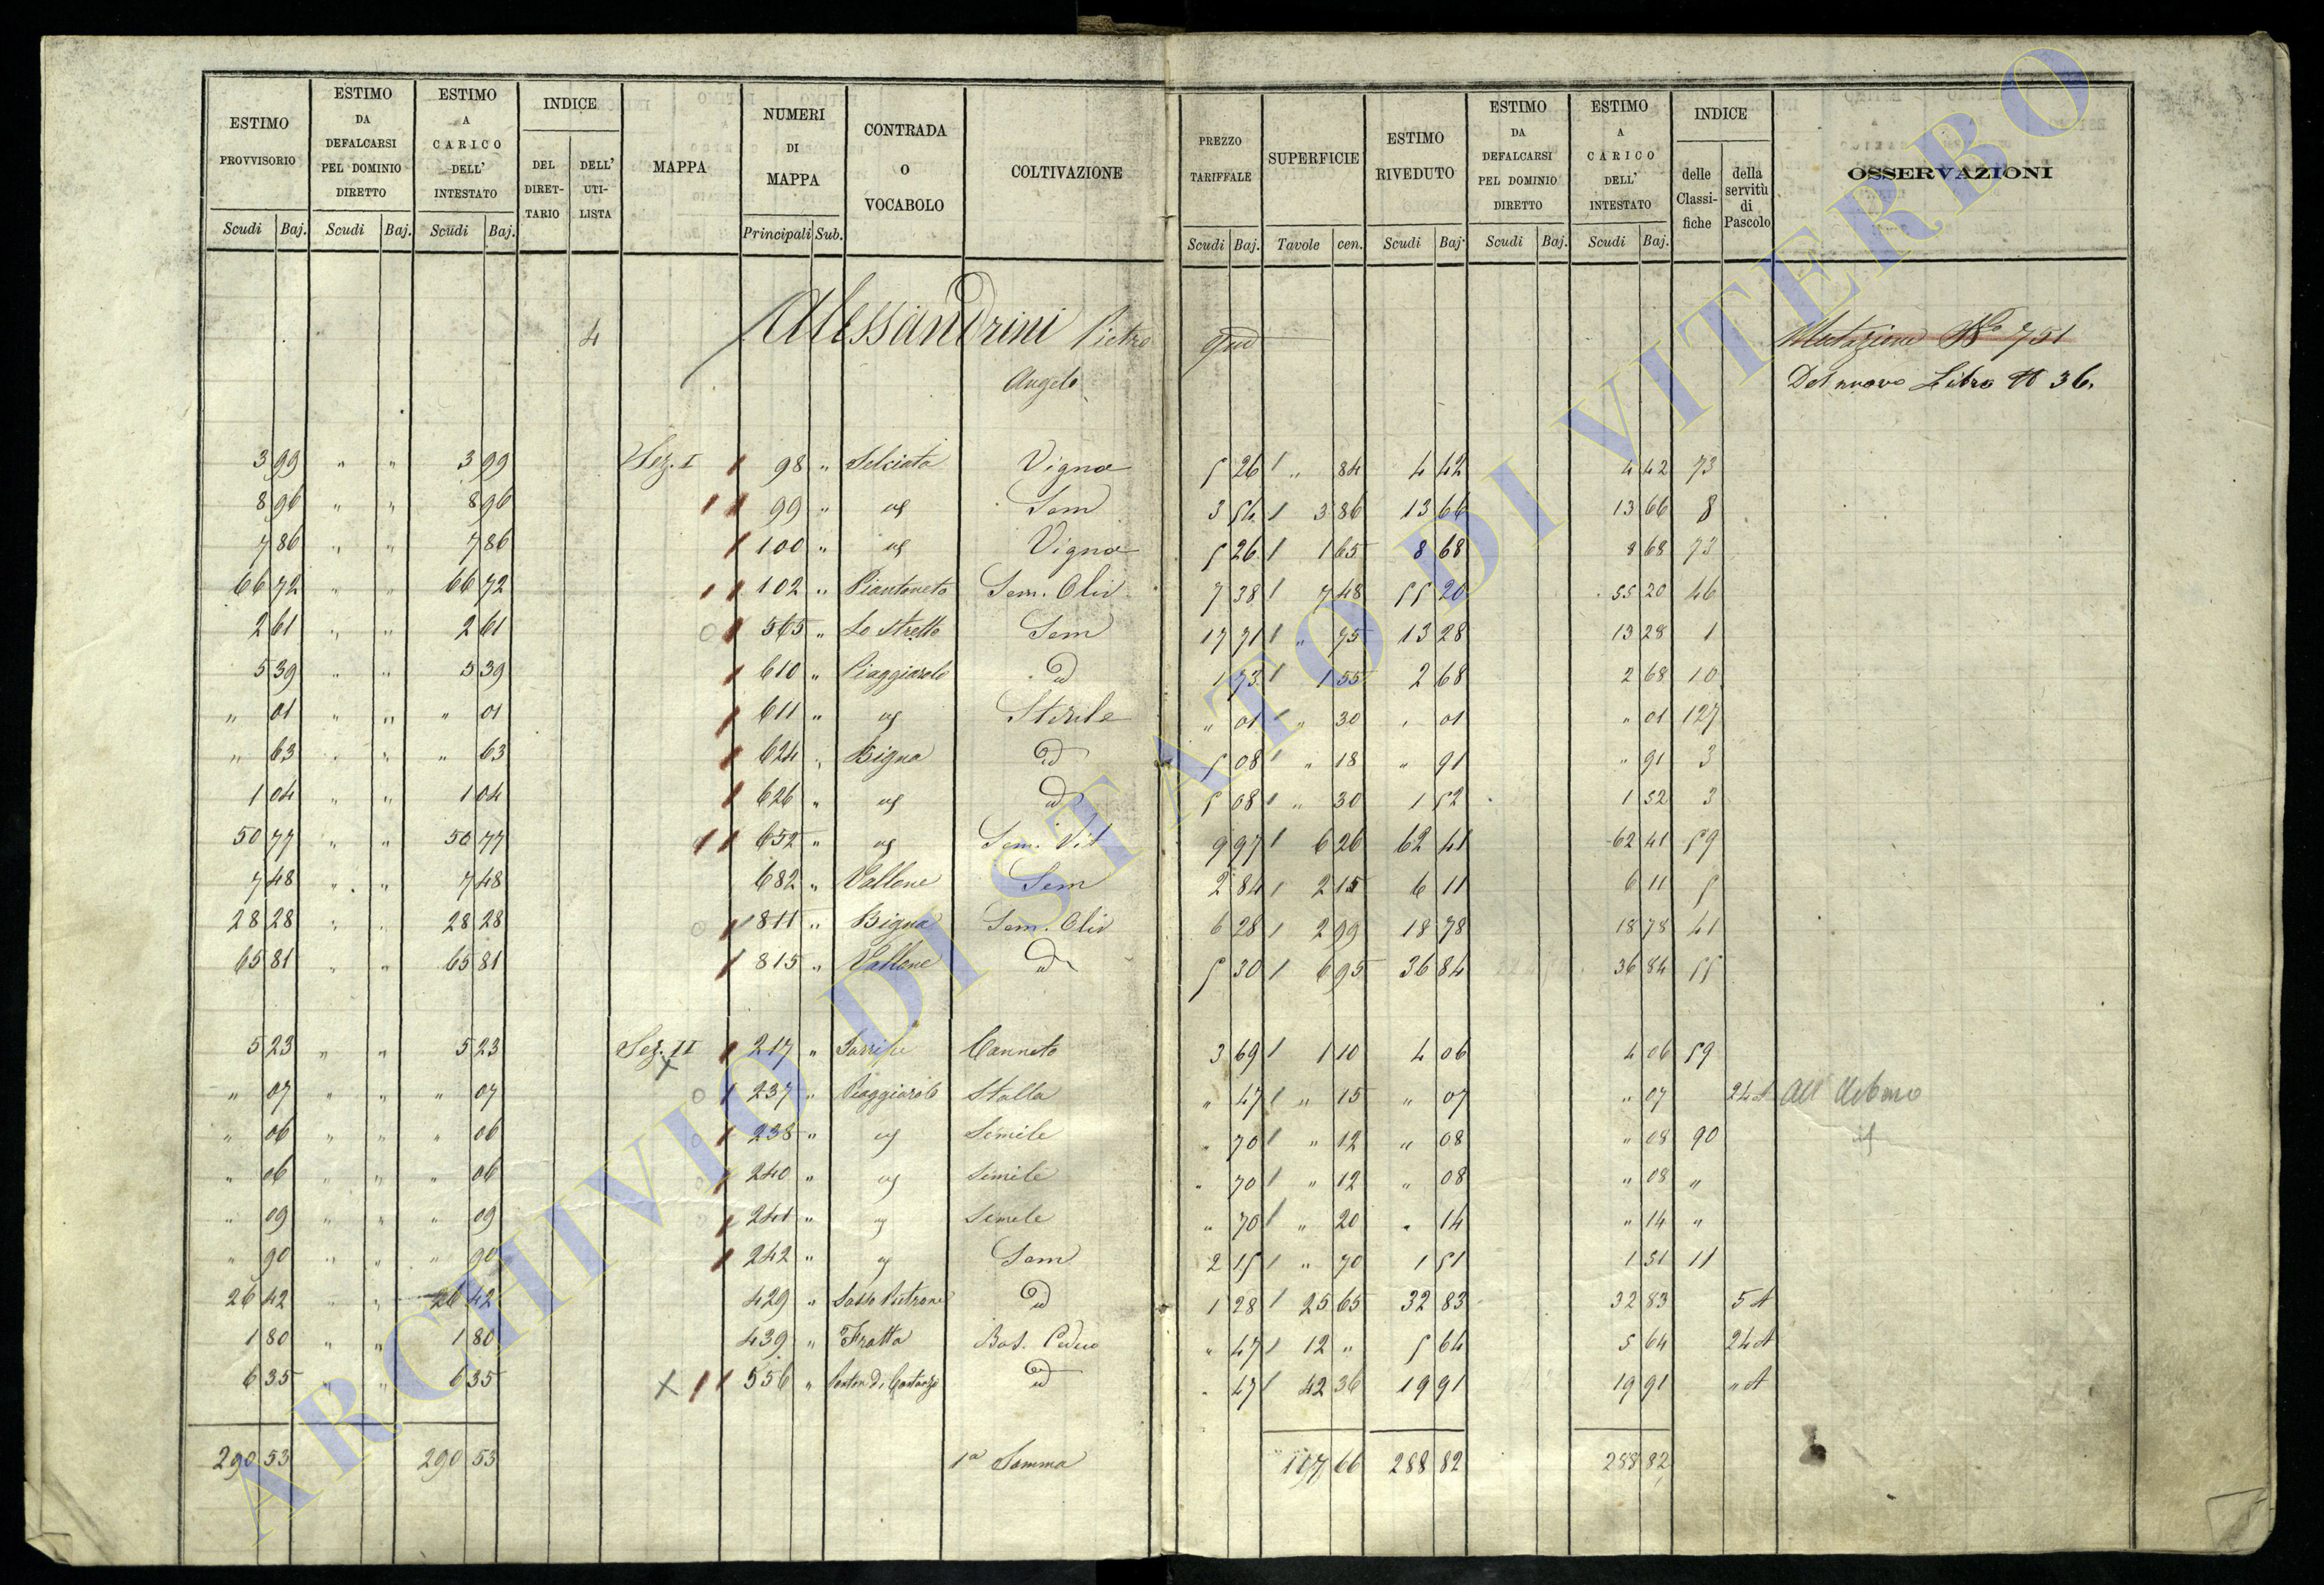 ESTIMO PROVVISORIO Scudi Baj.
ESTIMO DA DEFALCARSI PEL DOMINIO DIRETTO Scudi Baj.
ESTIMO A CARICO DELL' INTESTATO Scudi Baj.
INDICE DEL DIRET-TARIO DELL' UTI-LISTA
MAPPA
NUMERI DI MAPPA Principali Sub.
CONTRADA O VOCABOLO
COLTIVAZIONE
PREZZO TARIFFALE Scudi Baj.
SUPERFICIE Tavole cen.
ESTIMO RIVEDUTO Scudi Baj.
ESTIMO DA DEFALCARSI PEL DOMINIO DIRETTO Scudi Baj.
ESTIMO A CARICO DELL' INTESTATO Scudi Baj.
INDICE delle Classi-fiche della servitù di Pascolo
OSSERVAZIONI
4 Alessandrini Pietro qud Mutazione No 751
Angelo Del nuovo Libro N 36.
3 99 " " 3 99 Sez. I 98 " Selciata Vigna 5 26 " 84 4 42 4 42 73
8 96 " " 8 96 99 " id Sem 3 54 3 86 13 66 13 66 8
7 86 " " 7 86 100 " id Vigna 5 26 1 65 8 68 8 68 73
66 72 " " 66 72 102 " Piantoneto Sem. Oliv 7 38 7 48 55 20 55 20 46
2 61 " " 2 61 565 " Lo Stretto Sem 17 71 " 75 13 28 13 28 1
5 39 " " 5 39 610 " Piaggiarolo id 1 73 1 55 2 68 2 68 10
" 01 " " " 01 611 " id Sterile " 01 " 30 " 01 " 01 127
" 63 " " " 63 624 " Bigna id 5 08 " 18 " 91 " 91 3
1 04 " " 1 04 626 " id id 5 08 " 30 1 52 1 52 3
50 77 " " 50 77 652 " id Sem. Vit 9 97 6 26 62 41 62 41 59
7 48 " " 7 48 682 " Vallone Sem 2 84 2 15 6 11 6 11 5
28 28 " " 28 28 811 " Bigna Sem. Oliv 6 28 2 99 18 78 18 78 41
65 81 " " 65 81 815 " Vallone id 5 30 6 95 36 84 36 84 55
5 23 " " 5 23 Sez. II 217 " Canneto 3 69 1 10 4 06 4 06 59
" 07 " " " 07 237 " Piaggiarolo Stalla " 47 " 15 " 07 " 07 24 A
" 06 " " " 06 238 " id Simile " 70 " 12 " 08 " 08 90 id
" 06 " " " 06 240 " id Simile " 70 " 12 " 08 " 08 "
" 09 " " " 09 241 " id Simile " 70 " 20 " 14 " 14 "
" 90 " " " 90 242 " id Sem 2 15 " 70 1 51 1 51 11
26 42 " " 26 42 429 " Sasso Pietrone id 1 28 25 65 32 83 32 83 5 A
1 80 " " 1 80 439 " Fratta Bos. Ceduo " 47 12 " 5 64 5 64 24 A
6 35 " " 6 35 X 556 " id " 47 42 36 19 91 19 91 " A
290 53 290 53 1a Somma 117 66 288 82 288 82
ARCHIVIO DI STATO DI VITERBO